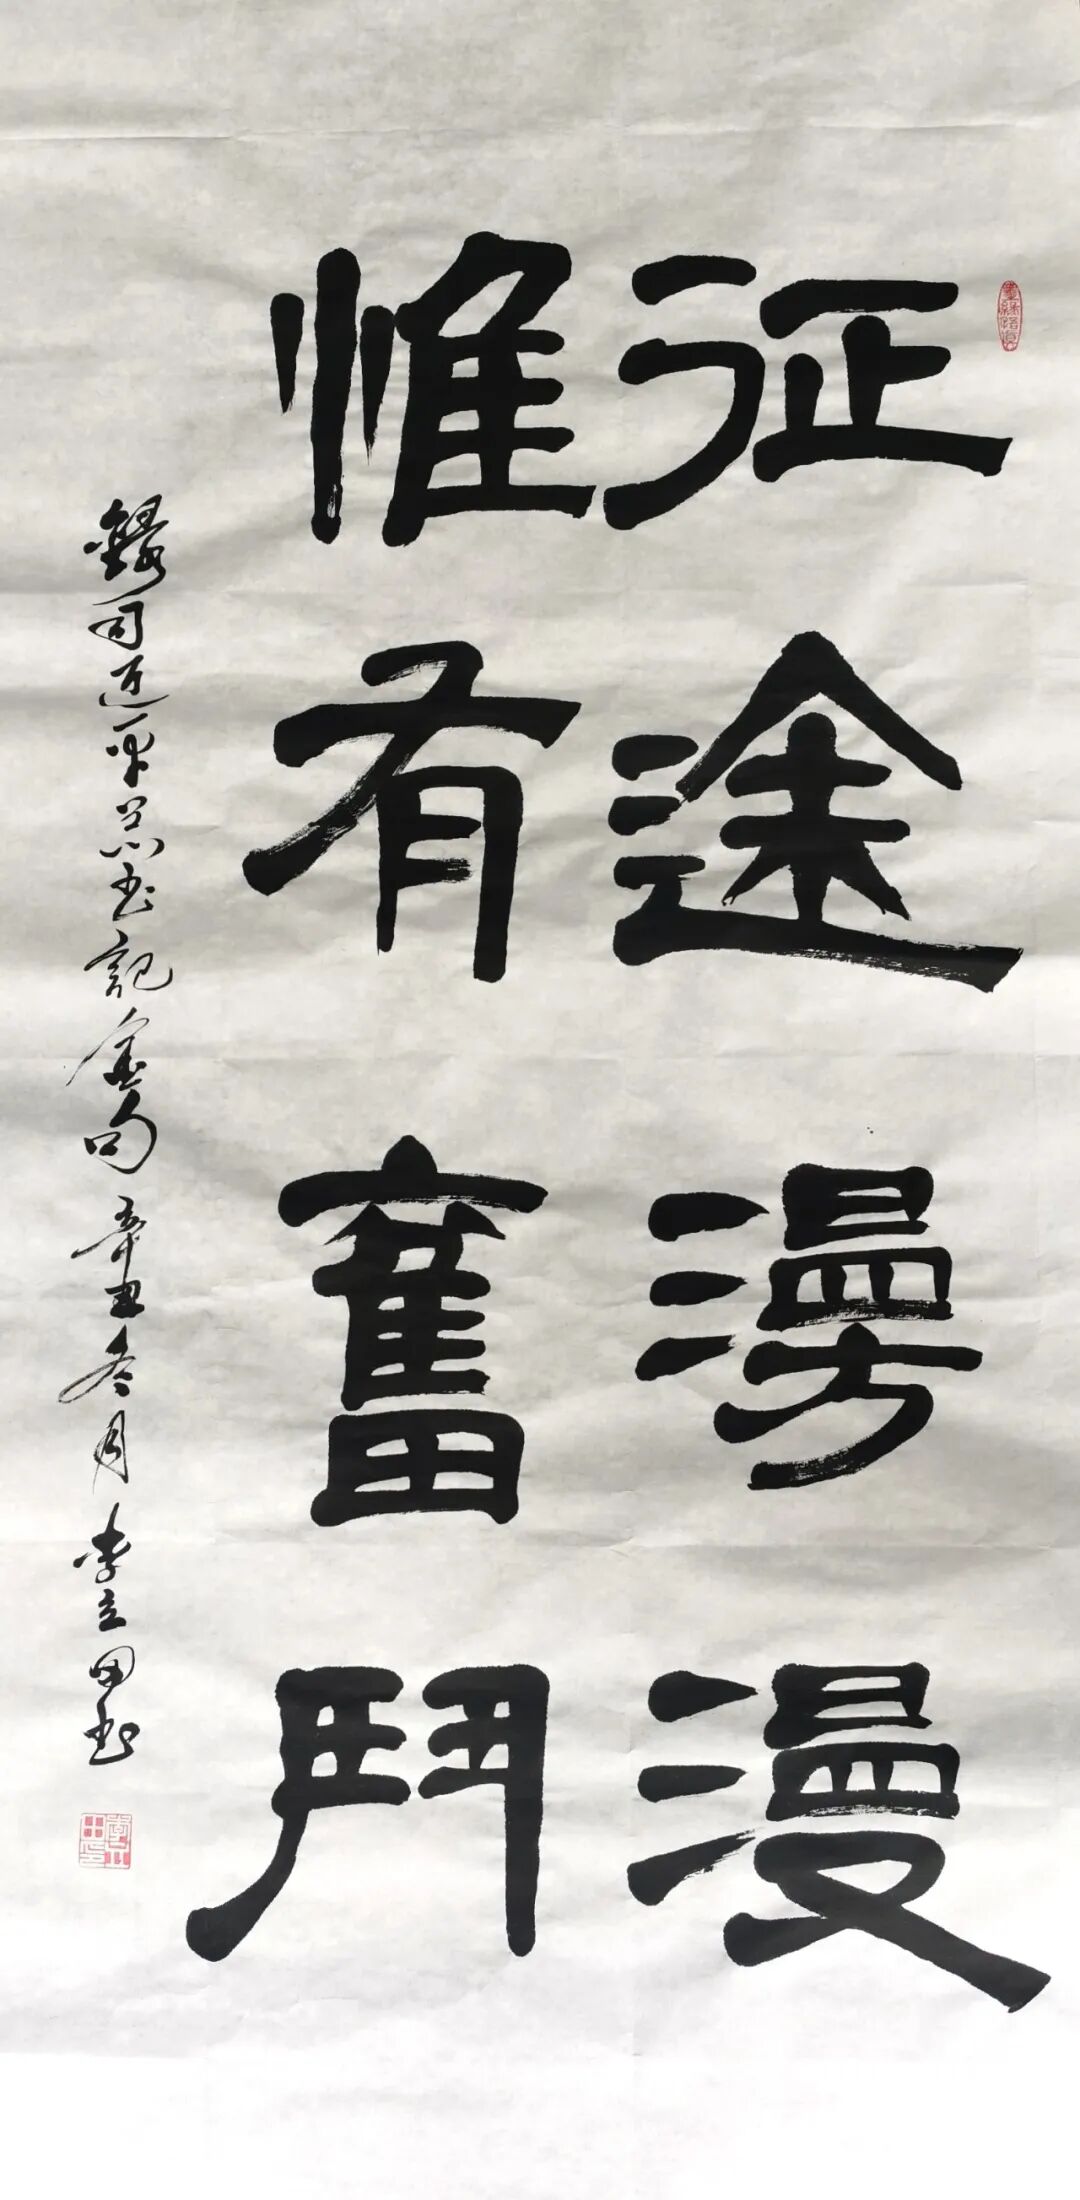 征途漫漫
惟有奮鬥
錄习近平总书記金句辛丑冬月李立田书